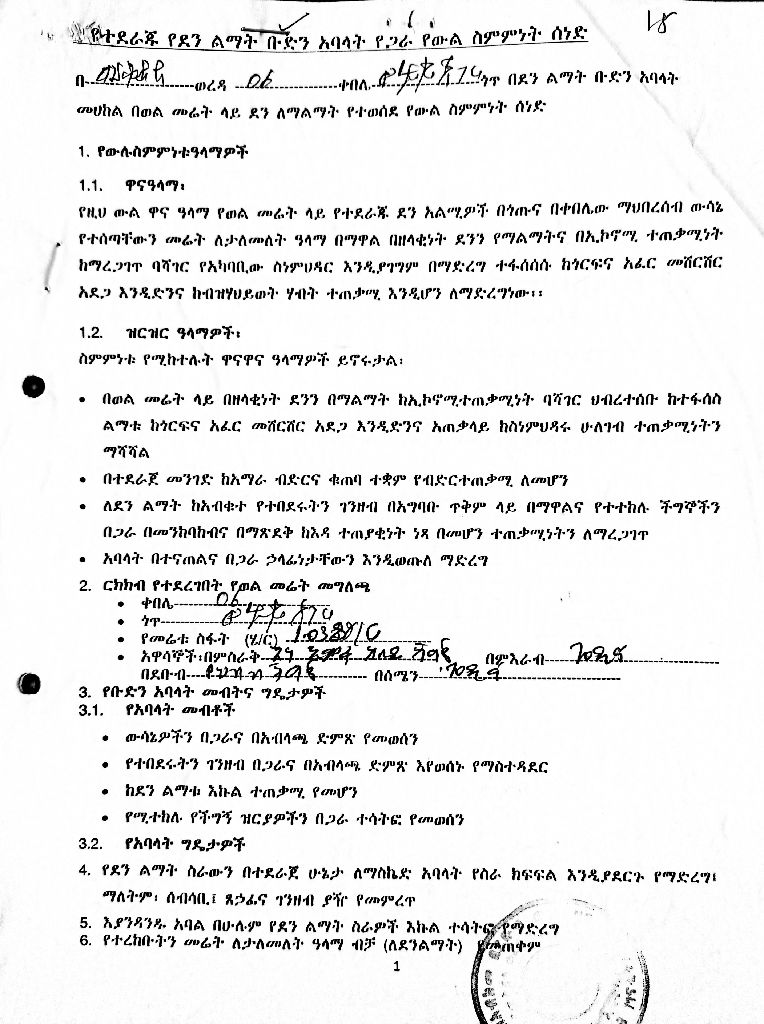 18
የተደራጁ የደን ልማት ቡድን አባላት የጋራ የውል ስምምነት ሰነድ
በ ወረዳ 06 ቀበሌ ጎጥ በደን ልማት ቡድን አባላት
መሀከል በወል መሬት ላይ ደን ለማልማት የተወሰደ የውል ስምምነት ሰነድ
1. የውሉስምምነቱዓላማዎች
1.1. ዋናዓላማ፡
የዚህ ውል ዋና ዓላማ የወል መሬት ላይ የተደራጁ ደን አልሚዎች በጎጡና በቀበሌው ማህበረሰብ ውሳኔ
የተሰጣቸውን መሬት ለታለመለት ዓላማ በማዋል በዘላቂነት ደንን የማልማትና በኢኮኖሚ ተጠቃሚነት
ከማረጋገጥ ባሻገር የአካባቢው ስነምህዳር እንዲያገግም በማድረግ ተፋሰሰሱ ከጎርፍና አፈር መሸርሸር
አደጋ እንዲድንና ከብዝሃህይወት ሃብት ተጠቃሚ እንዲሆን ለማድረግነው፡፡
1.2. ዝርዝር ዓላማዎች፡
ስምምነቱ የሚከተሉት ዋናዋና ዓላማዎች ይኖሩታል፡
• በወል መሬት ላይ በዘላቂነት ደንን በማልማት ከኢኮኖሚተጠቃሚነት ባሻገር ህብረተሰቡ ከተፋሰስ
ልማቱ ከጎርፍና አፈር መሸርሸር አደጋ እንዲድንና አጠቃላይ ከስነምህዳሩ ሁለገብ ተጠቃሚነትን
ማሻሻል
• በተደራጀ መንገድ ከአማራ ብድርና ቁጠባ ተቋም የብድርተጠቃሚ ለመሆን
• ለደን ልማት ከአብቁተ የተበደሩትን ገንዘብ በአግባቡ ጥቅም ላይ በማዋልና የተተከሉ ችግኞችን
በጋራ በመንከባከብና በማጽደቅ ከእዳ ተጠያቂነት ነጻ በመሆን ተጠቃሚነትን ለማረጋገጥ
• አባላት በተናጠልና በጋራ ኃላፊነታቸውን እንዲወጡለ ማድረግ
2. ርክክብ የተደረገበት የወል መሬት መግለጫ
• ቀበሌ 06
• ጎጥ
• የመሬቱ ስፋት (ሄ/ር)
• አዋሳኞች፡በምስራቅ በምእራብ
በደቡብ በሰሜን
3. የቡድን አባላት መብትና ግዴታዎች
3.1. የአባላት መብቶች
• ውሳኔዎችን በጋራና በአብላጫ ድምጽ የመወሰን
• የተበደሩትን ገንዘብ በጋራና በአብላጫ ድምጽ እየወሰኑ የማስተዳደር
• ከደን ልማቱ እኩል ተጠቃሚ የመሆን
• የሚተከሉ የችግኝ ዝርያዎችን በጋራ ተሳትፎ የመወሰን
3.2. የአባላት ግዴታዎች
4. የደን ልማት ስራውን በተደራጀ ሁኔታ ለማስኬድ አባላት የስራ ክፍፍል እንዲያደርጉ የማድረግ፤
ማለትም፡ ሰብሳቢ፤ ጸኃፊና ገንዘብ ያዥ የመምረጥ
5. እያንዳንዱ አባል በሁሉም የደን ልማት ስራዎች እኩል ተሳትፎ የማድረግ
6. የተረከቡትን መሬት ለታለመለት ዓላማ ብቻ (ለደንልማት) የመጠቀም
1